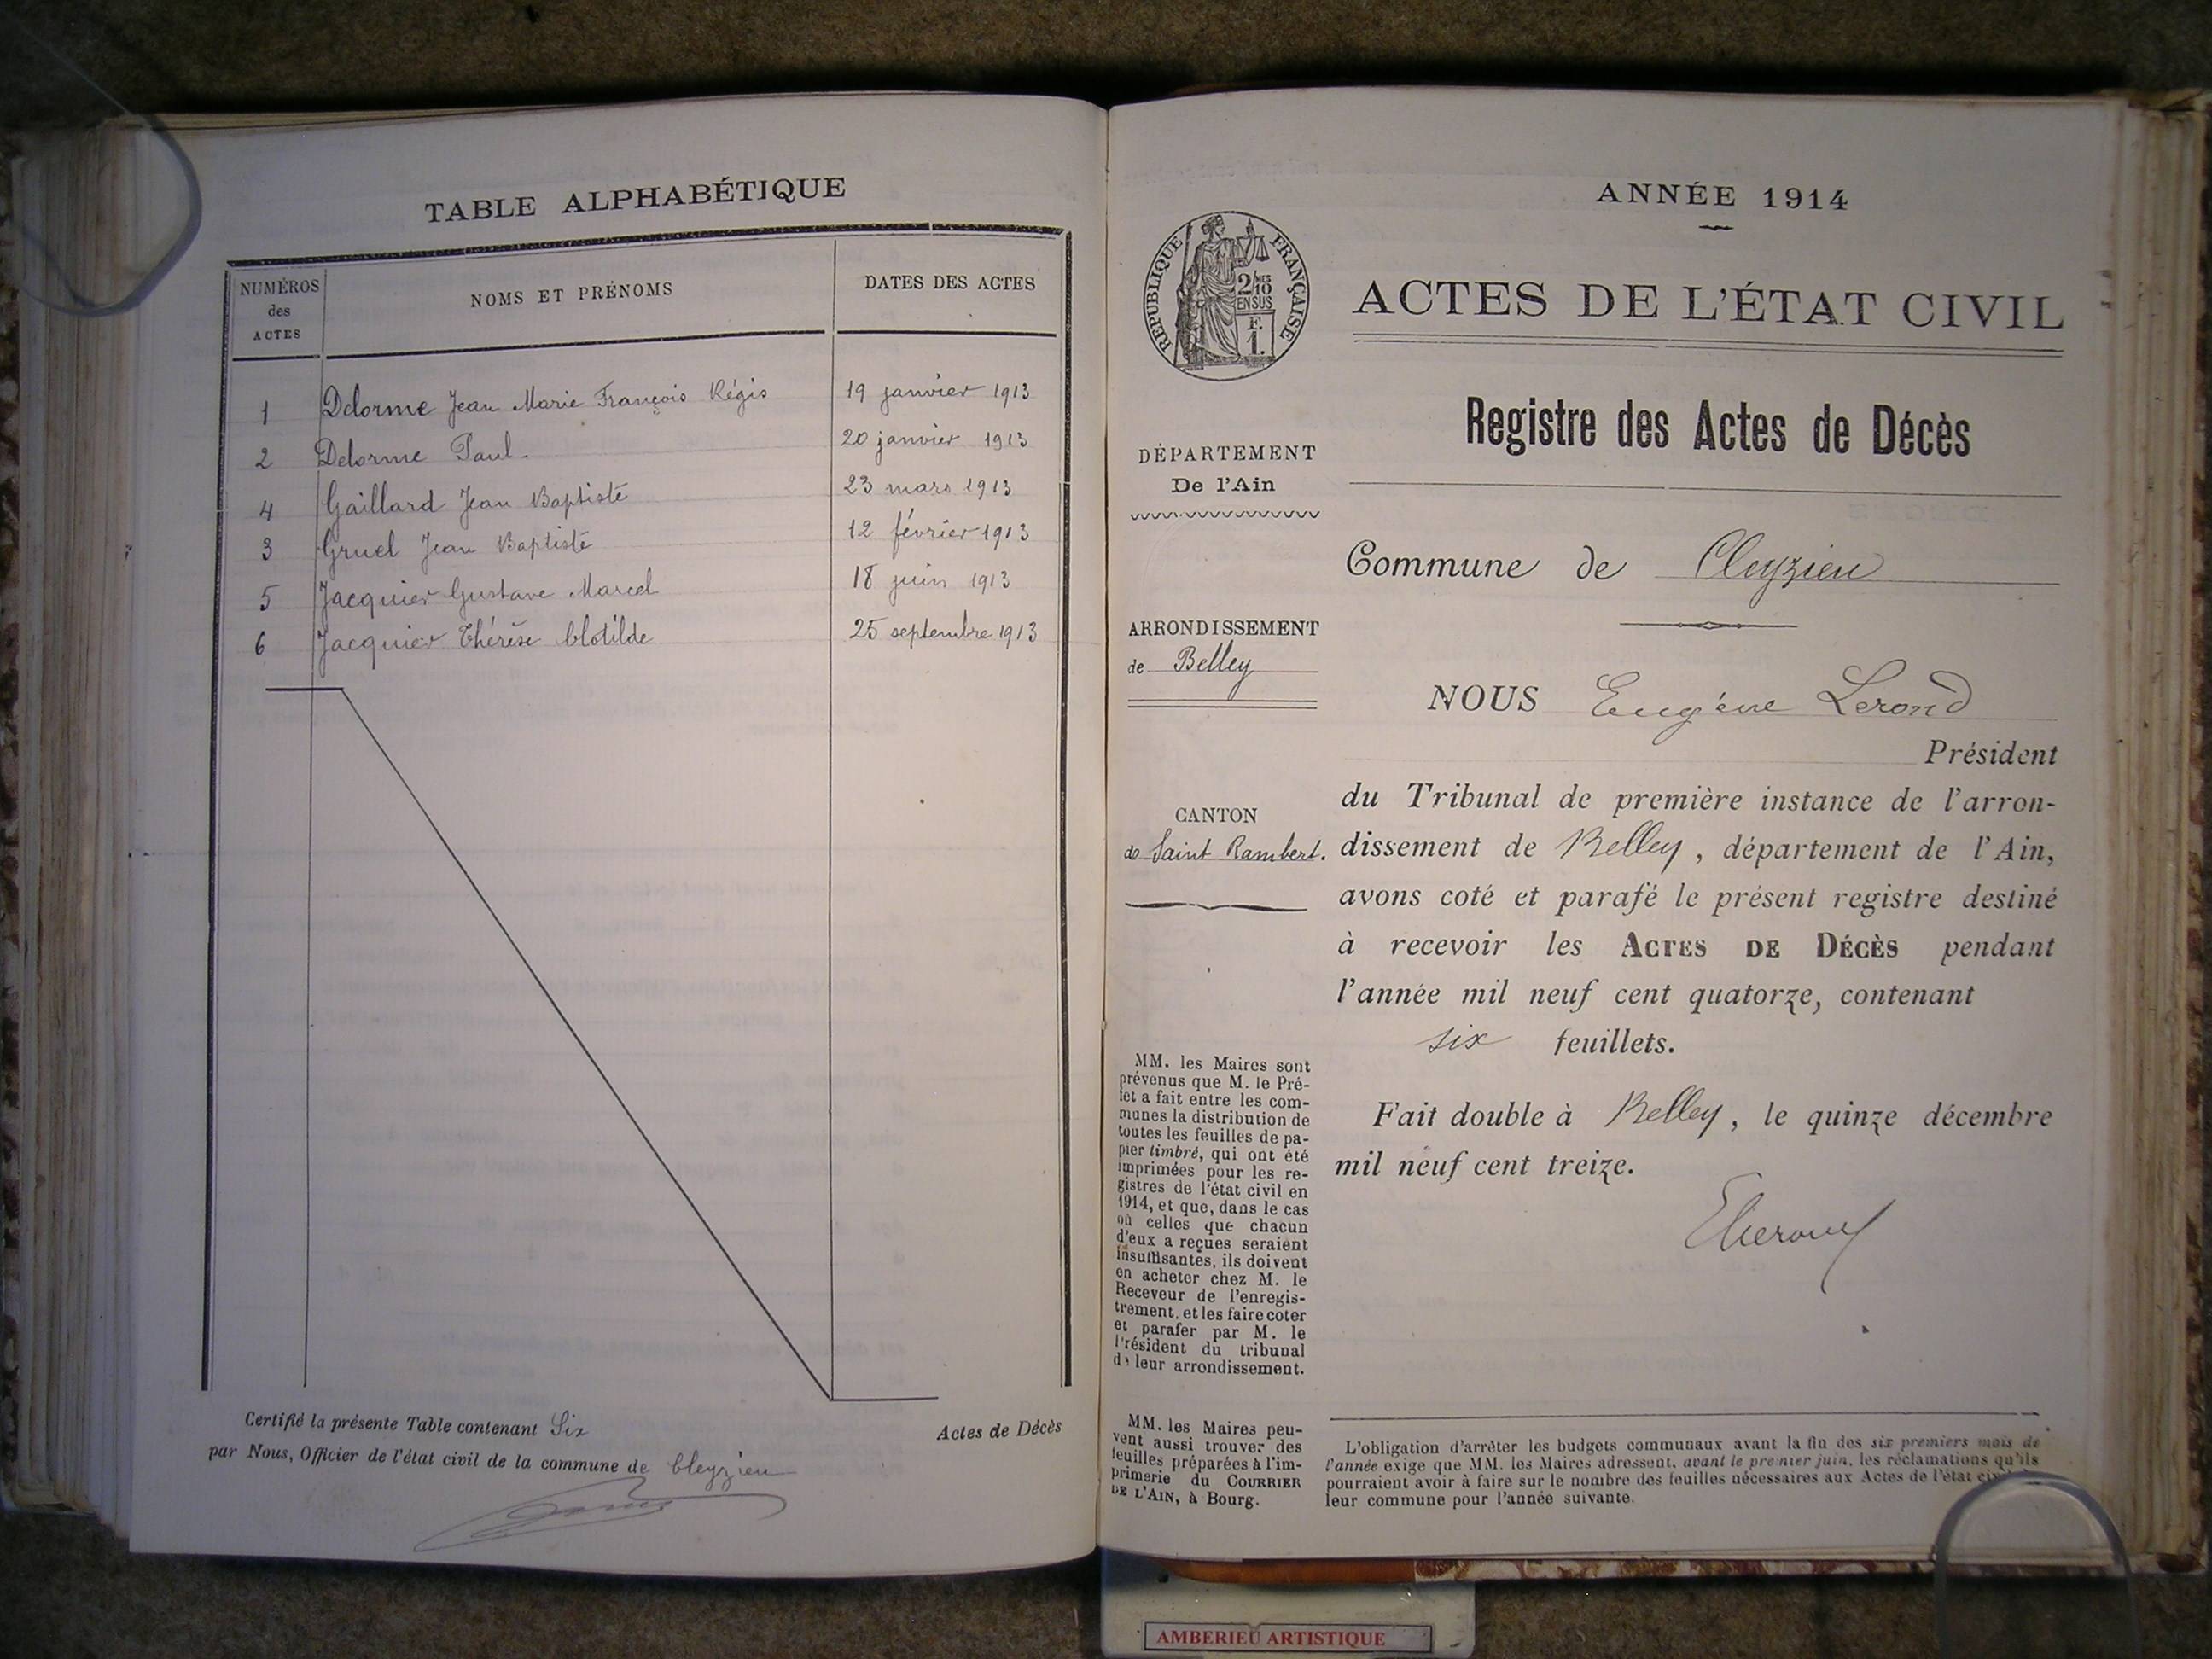 TABLE ALPHABÉTIQUE
NUMÉROS
des
ACTES
NOMS ET PRÉNOMS
DATES DES ACTES
1 Delorme Jean Marie François Régis 19 janvier 1913
2 Delorme Paul. 20 janvier 1913
4 Gaillard Jean Baptiste 23 mars 1913
3 Gruel Jean Baptiste 12 février 1913
5 Jacquier Gustave Marcel 18 juin 1913
6 Jacquier Thérèse Clotilde 25 septembre 1913
Certifié la présente Table contenant Six Actes de Décès
par Nous, Officier de l'état civil de la commune de Cleyzieu
ANNÉE 1914
RÉPUBLIQUE FRANÇAISE
2/10 MES
EN SUS
F.
1.
ACTES DE L'ÉTAT CIVIL
Registre des Actes de Décès
DÉPARTEMENT
De l'Ain
Commune de Cleyzieu
ARRONDISSEMENT
de Belley
CANTON
de Saint Rambert.
NOUS Eugène Lerond
Président
du Tribunal de première instance de l'arron-
dissement de Belley, département de l'Ain,
avons coté et parafé le présent registre destiné
à recevoir les ACTES DE DÉCÈS pendant
l'année mil neuf cent quatorze, contenant
six feuillets.
Fait double à Belley, le quinze décembre
mil neuf cent treize.
MM. les Maires sont
prévenus que M. le Pré-
fet a fait entre les com-
munes la distribution de
toutes les feuilles de pa-
pier timbré, qui ont été
imprimées pour les re-
gistres de l'état civil en
1914, et que, dans le cas
où celles que chacun
d'eux a reçues seraient
insuffisantes, ils doivent
en acheter chez M. le
Receveur de l'enregis-
trement, et les faire coter
et parafer par M. le
Président du tribunal
de leur arrondissement.
MM. les Maires peu-
vent aussi trouver des
feuilles préparées à l'im-
primerie du COURRIER
DE L'AIN, à Bourg.
L'obligation d'arrêter les budgets communaux avant la fin des six premiers mois de
l'année exige que MM. les Maires adressent, avant le premier juin, les réclamations qu'ils
pourraient avoir à faire sur le nombre des feuilles nécessaires aux Actes de l'état civil
leur commune pour l'année suivante.
AMBERIEU ARTISTIQUE